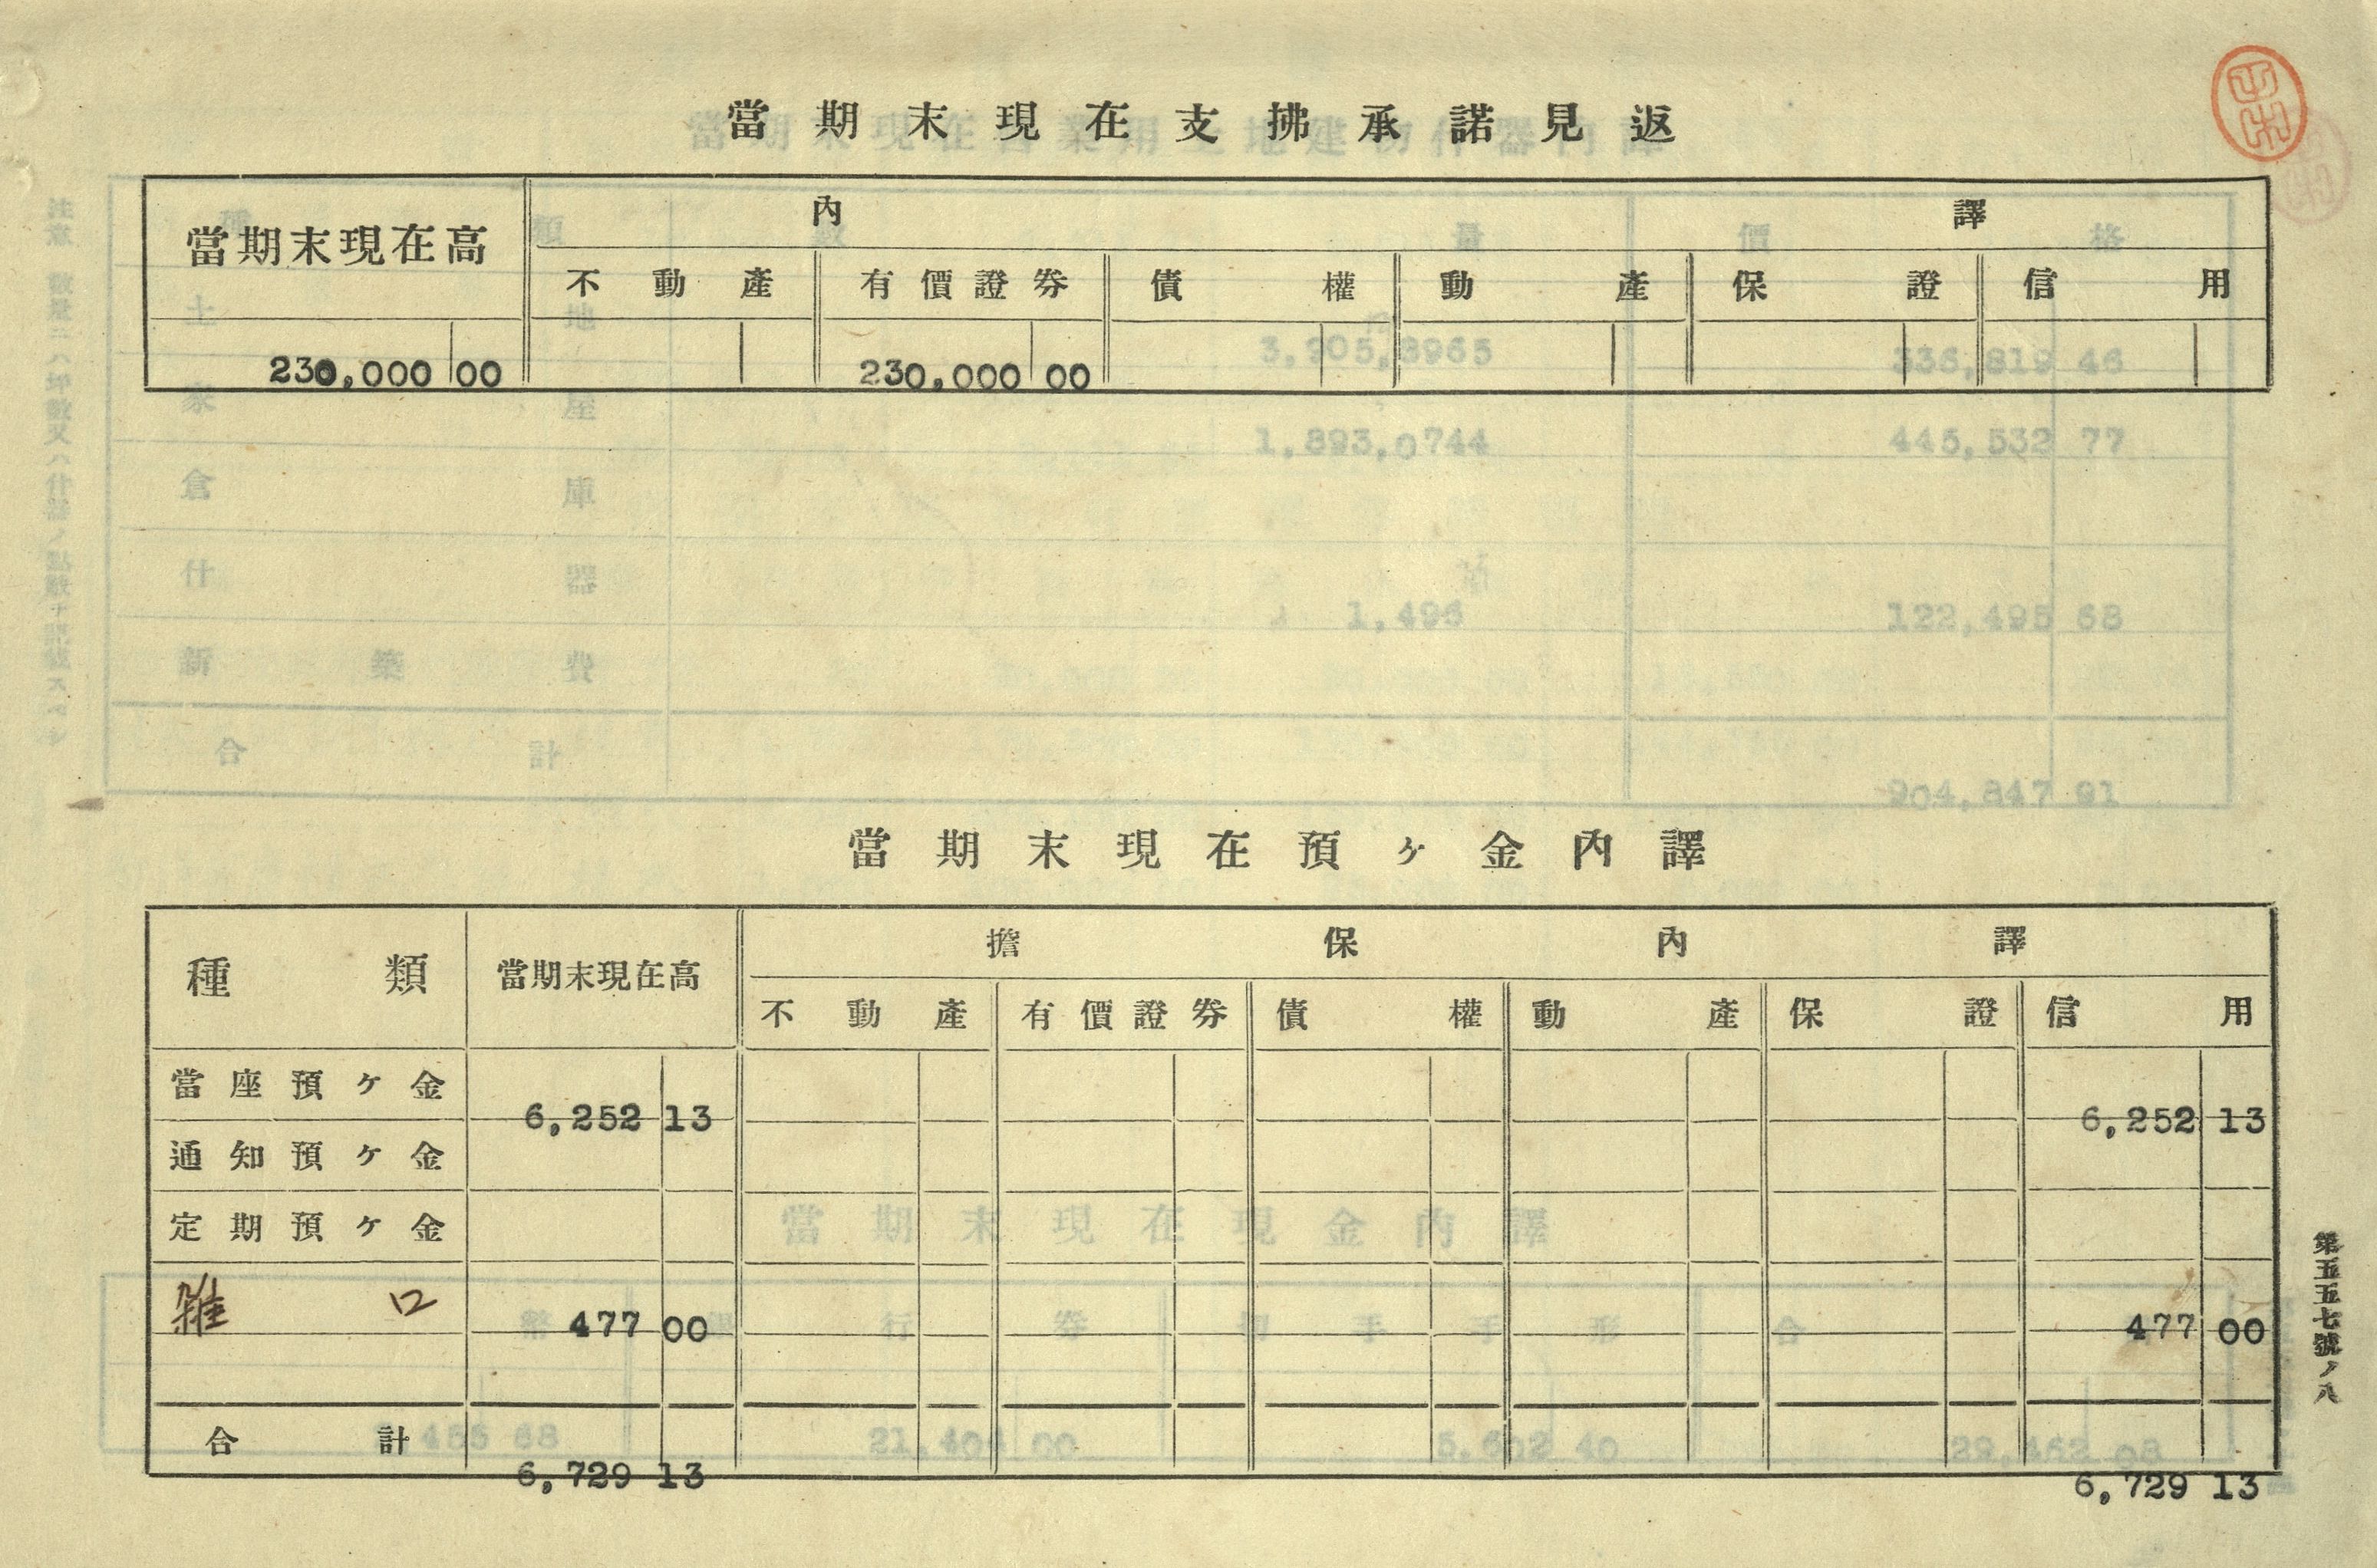 當期末現在支拂承諾見返
當期末現在高 內譯
不動產 有價證券 債權 動產 保證 信用
230,000 00 230,000 00
當期末現在預ヶ金內譯
種類 當期末現在高 擔保內譯
不動產 有價證券 債權 動產 保證 信用
當座預ヶ金 6,252 13 6,252 13
通知預ヶ金
定期預ヶ金
雜口 477 00 477 00
合計 6,729 13 6,729 13
第五五七號ノ八